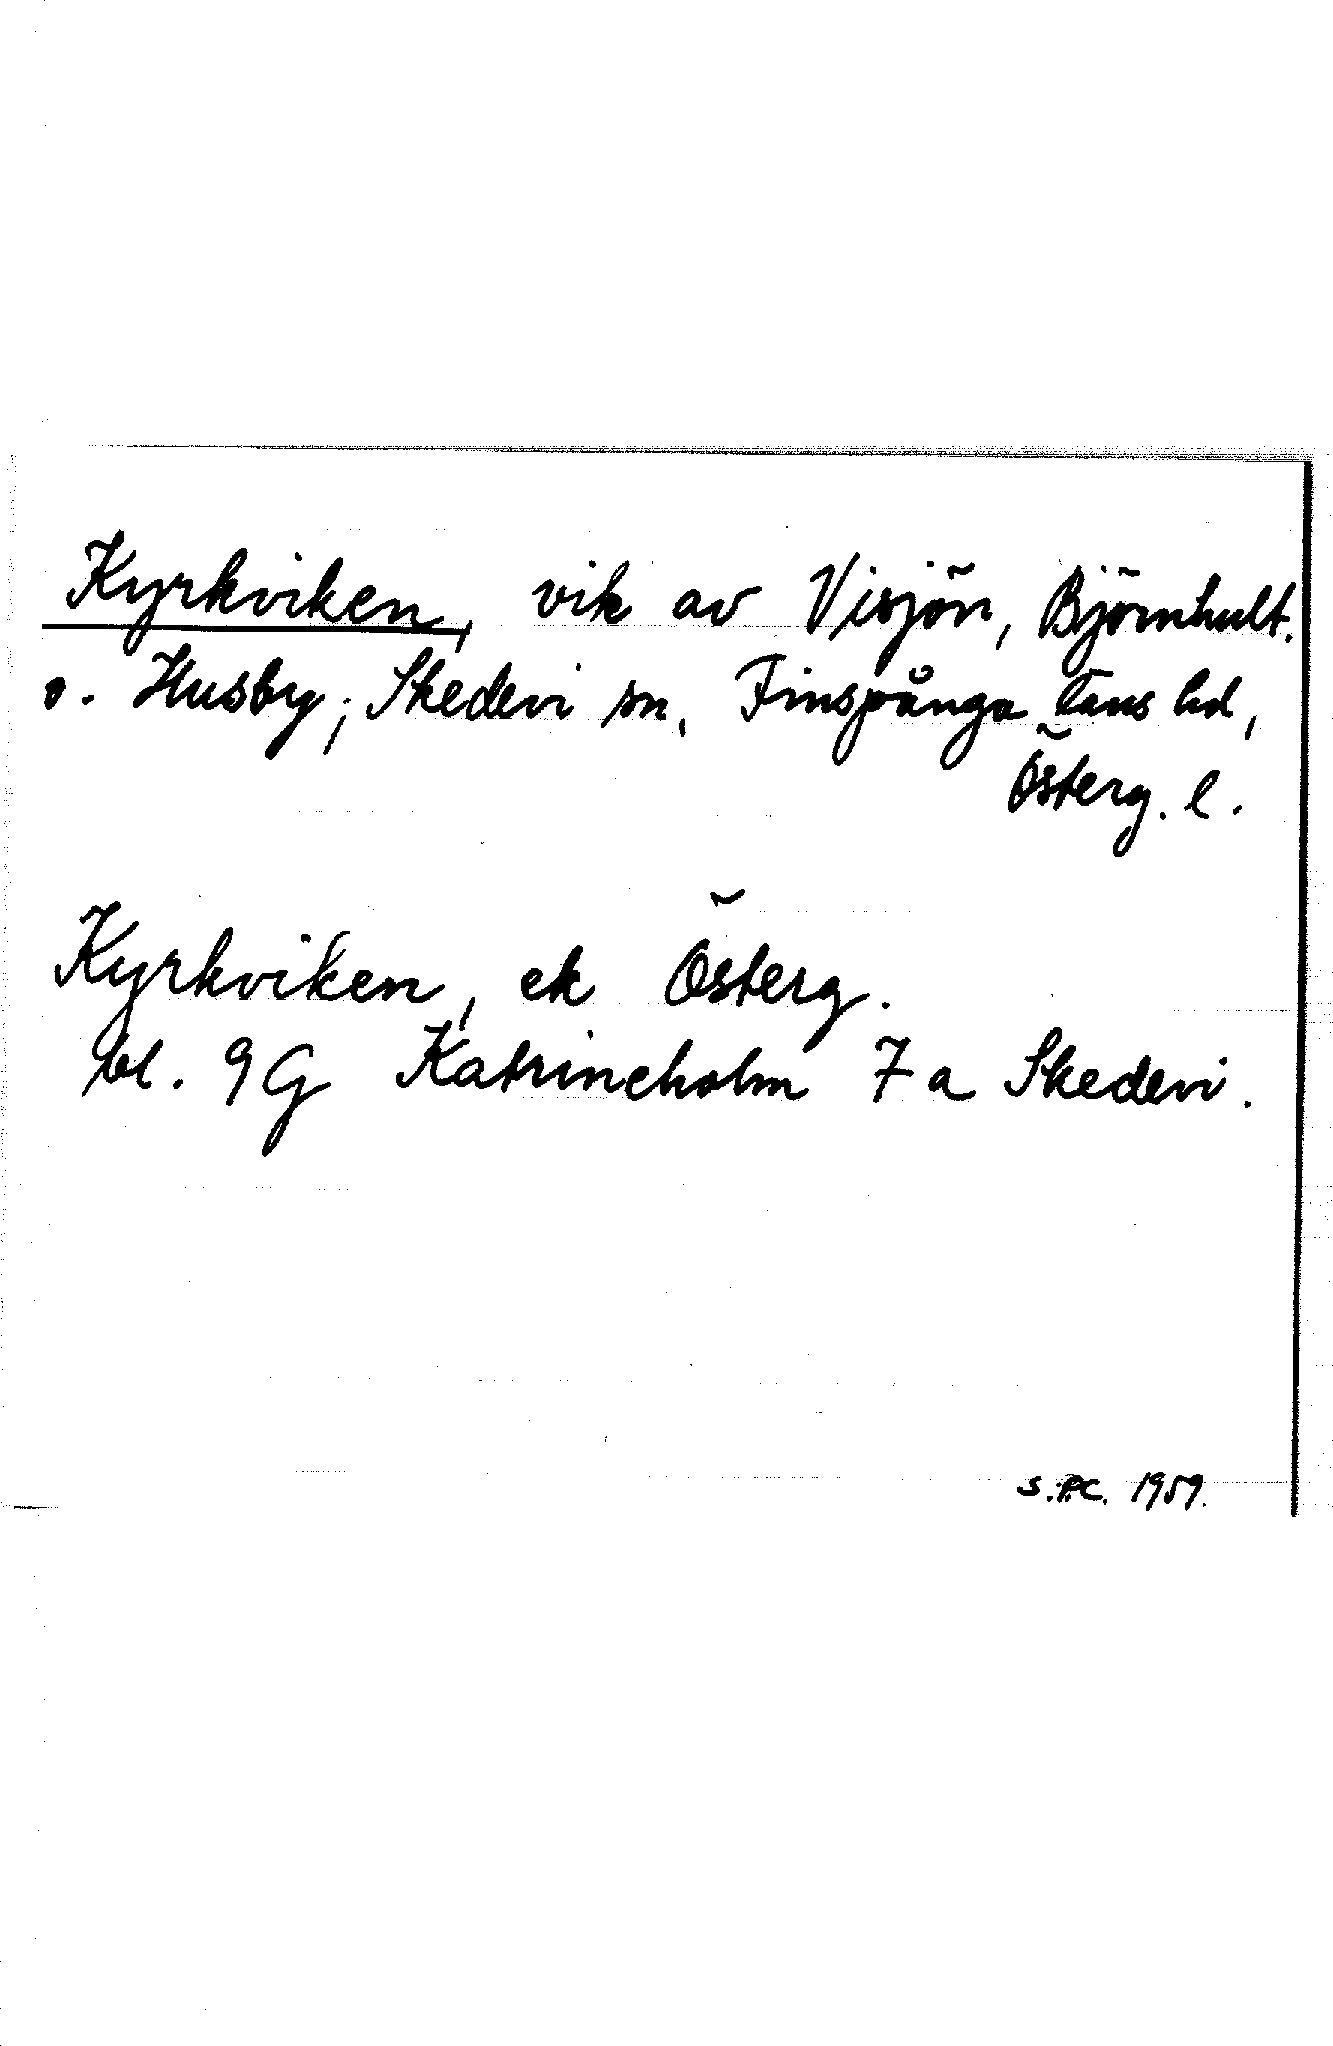 Kyrkviken, vik av Visjön, Björnhult.
o. Husby; Skedevi sn, Finspånga läns hd,
Österg. l.
Kyrkviken, ek Österg.
bl. 9G Katrineholm 7a Skedevi.
1959.